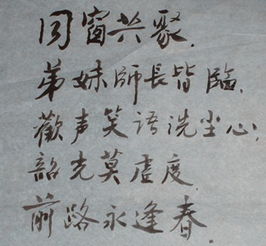 同窗共聚.
弟妹師長皆臨.
歡声笑语洗尘心;
韶光莫虚度.
前路永逢春.